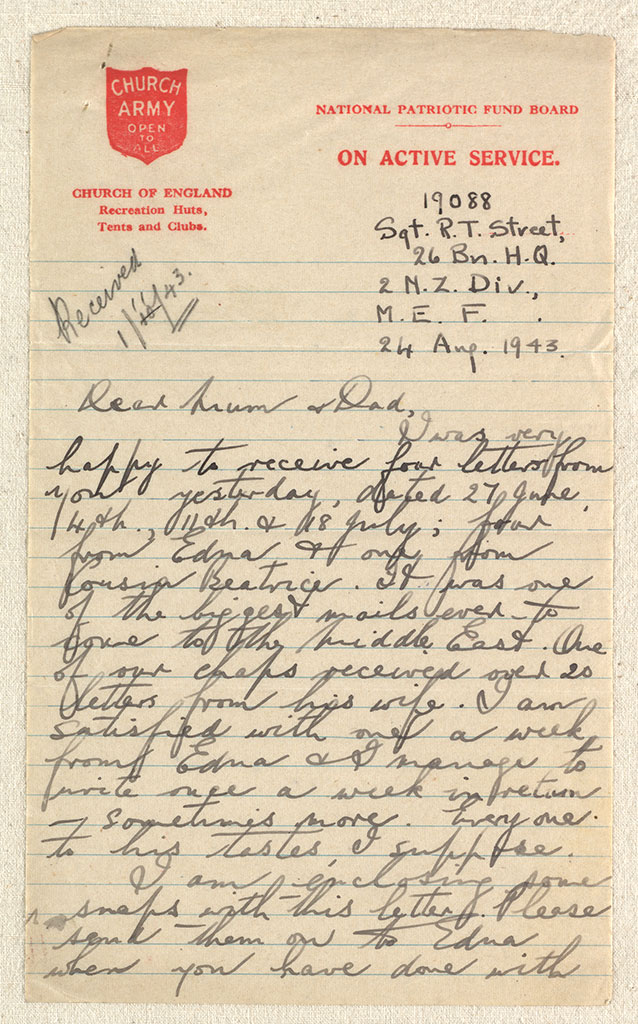 CHURCH
ARMY
OPEN
TO
ALL
CHURCH OF ENGLAND
Recreation Huts,
Tents and Clubs.
NATIONAL PATRIOTIC FUND BOARD
ON ACTIVE SERVICE.
19088
Sgt. R.T. Street,
26 Bn. H.Q.
2 N.Z. Div.,
M. E. F.
24 Aug. 1943.
Received
Dear Mum & Dad,
I was very
happy to receive four letters from
you yesterday, dated 27 June,
4th., 11th. & 18 July; four
from Edna & one from
Cousin Beatrice. It was one
of the biggest mails ever to
come to the Middle East. One
of our chaps received over 20
letters from his wife. I am
satisfied with one a week
from Edna & I manage to
write once a week in return
- sometimes more. Everyone
to his tastes, I suppose.
I am enclosing some
snaps with this letter. Please
send them on to Edna
when you have done with